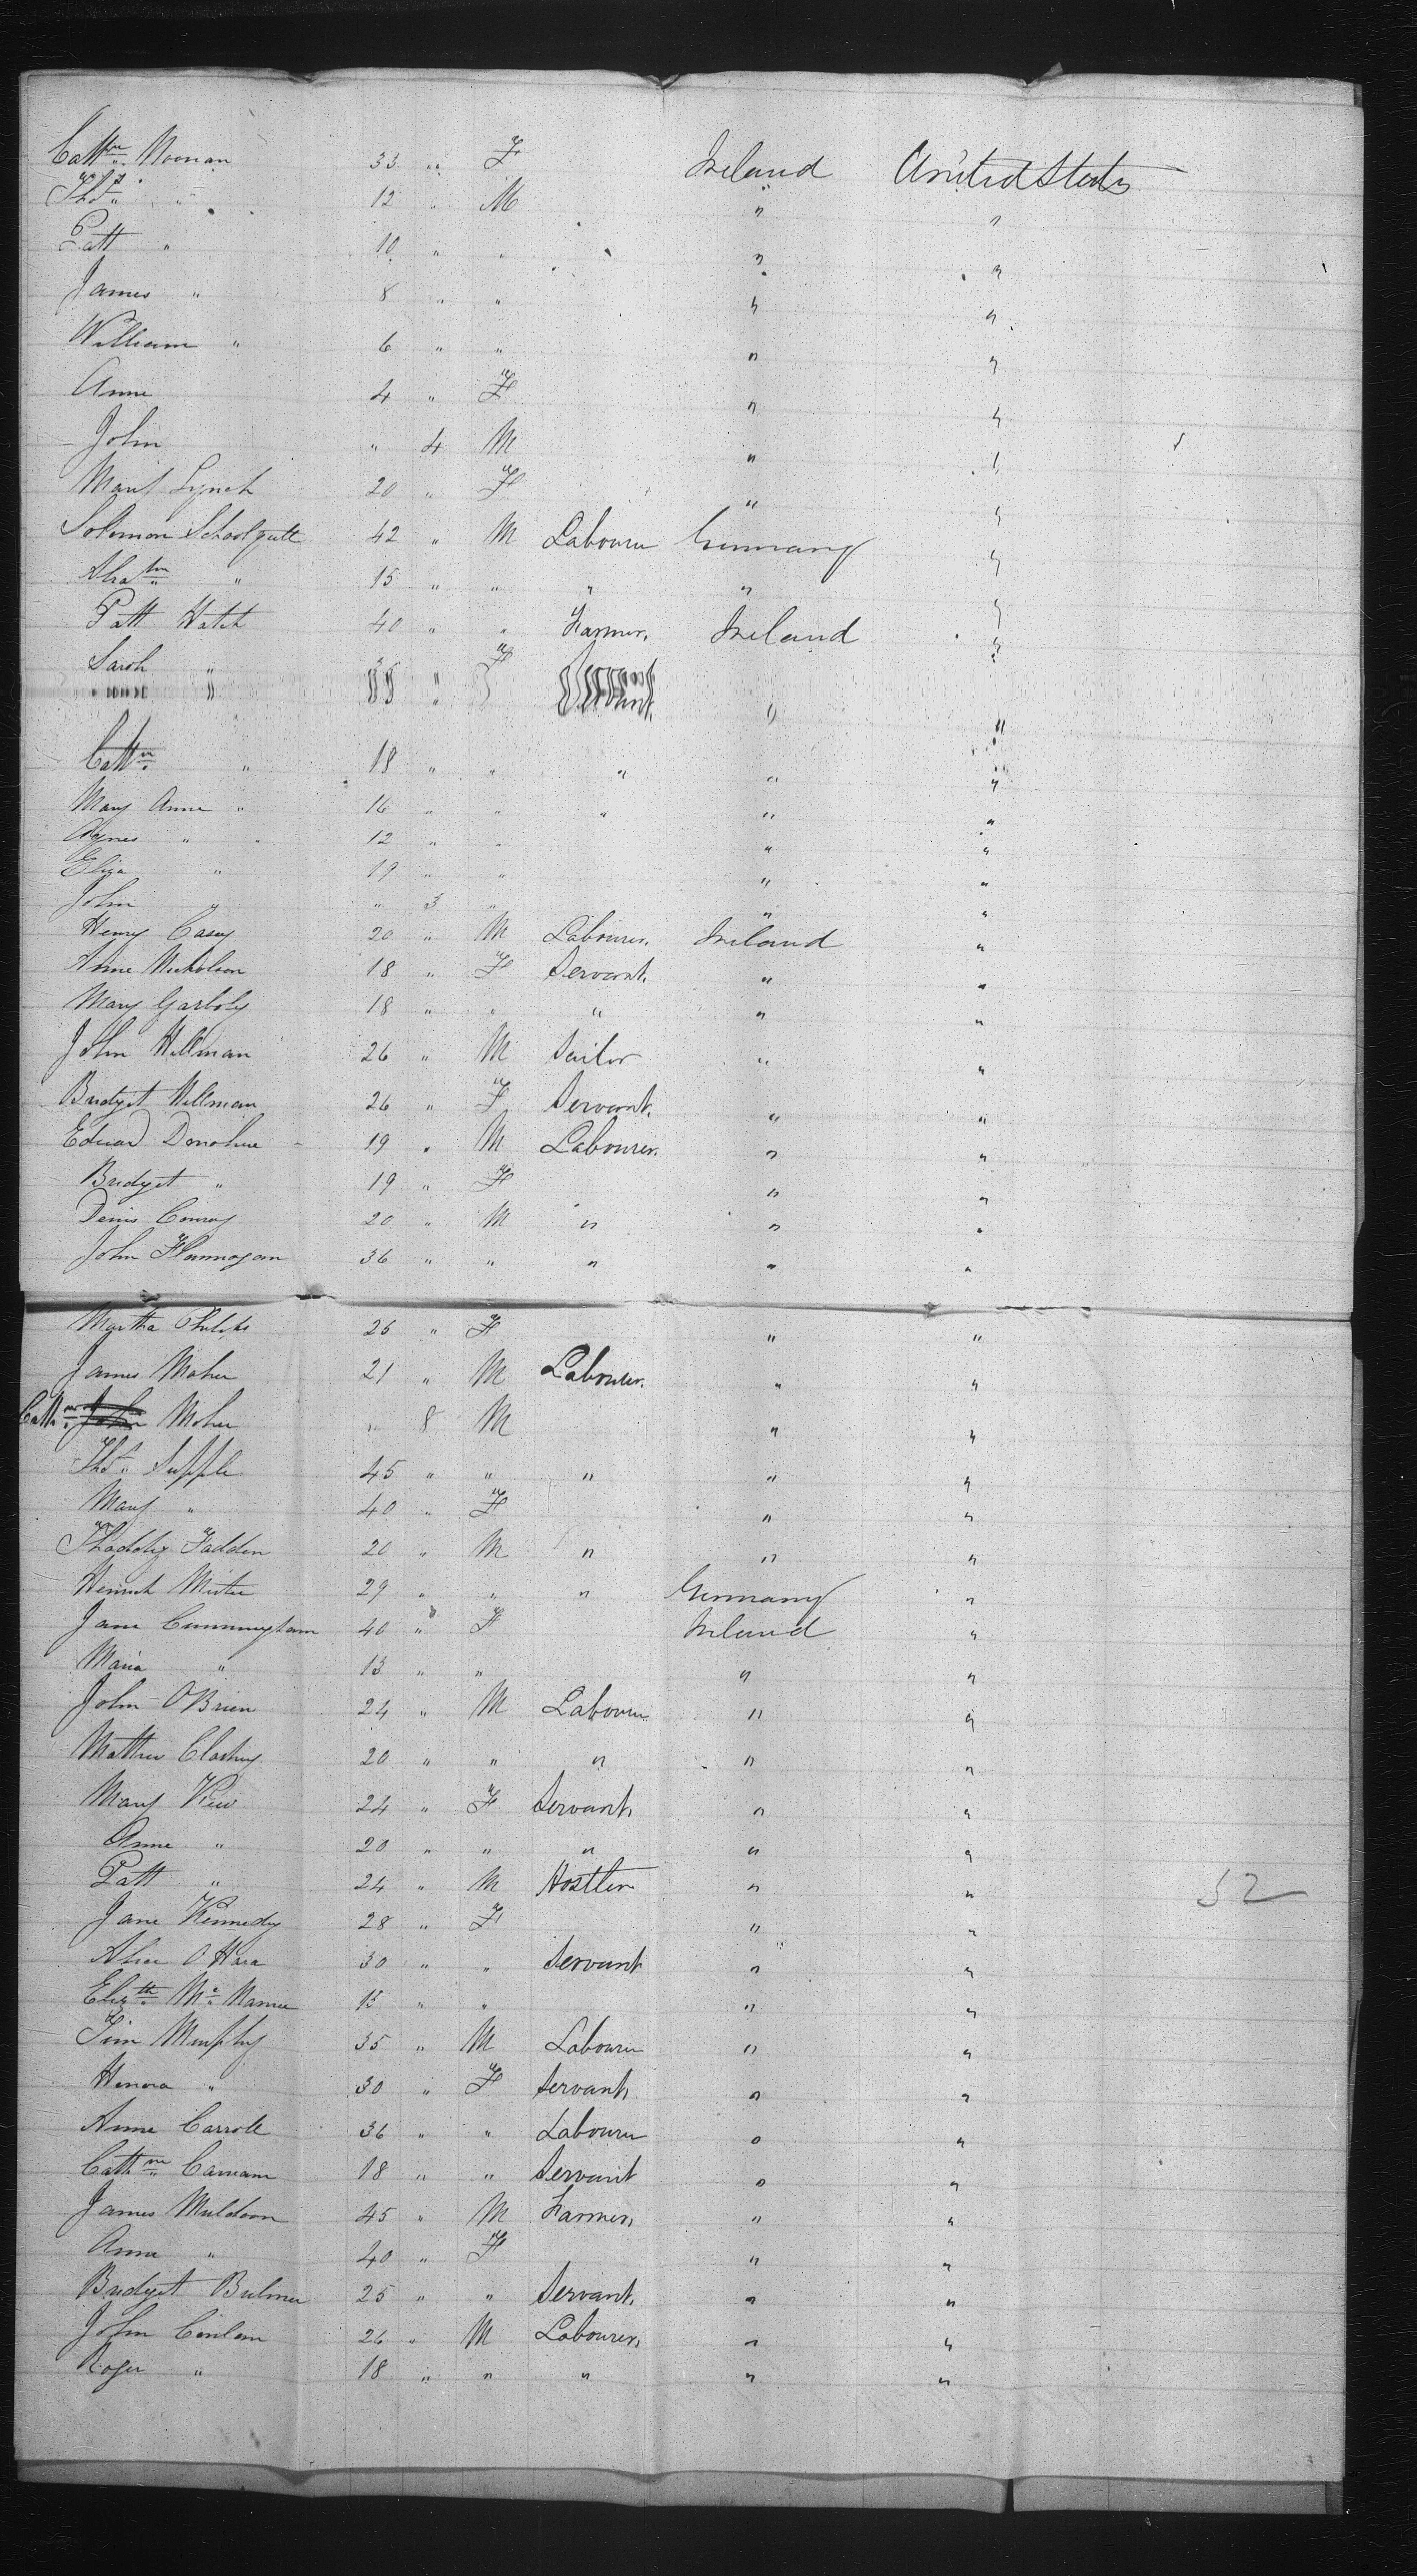 Cathn. Noonan 33 " F Ireland United States
Thos. " 12 " M " "
Patt " 10 " " " "
James " 8 " " " "
William " 6 " " " "
Anne 4 " F " "
John " 4 M " "
Mary Lynch 20 " F " "
Solomon 42 " M Labourer Germany "
Abahm " 15 " " " " "
Patt Hatch 40 " " Farmer. Ireland "
Sarah " 35 " F Servant " "
Cathn. " 18 " " " " "
Mary Anne " 16 " " " " "
Agnes " 12 " " " "
Eliza " 19 " " " "
John " " 3 " " "
Henry Casey 20 " M Labourer. Ireland "
Anne Nicholson 18 " F Servant. " "
Mary 18 " " " " "
John Hillman 26 " M Sailor " "
Bridget Hillman 26 " F Servant. " "
Edward Donohue 19 " M Labourer. " "
Bridget " 19 " F " "
Denis Conroy 20 " M " " "
John Flannagan 36 " " " " "
Martha 25 " F " "
James Maher 21 " M Labourer. " "
Cathn. John Maher " 8 M " "
Thos. Supple 45 " " " " "
Mary " 40 " F " "
Fadden 20 " M " " "
29 " " " Germany "
Jane Cunningham 40 " F Ireland "
Maria " 13 " " " "
John O'Brien 24 " M Labourer " "
Mathew 20 " " " " "
Mary 24 " F Servant. " "
Anne " 20 " " " " "
Patt " 24 " M Hostler " " 52
Jane Kennedy 28 " F " "
Alice O'Hara 30 " " Servant " "
Elizth. " " " "
Tim Murphy 35 " M Labourer " "
Honora " 30 " F Servant. " "
Anne Carroll 36 " " Labourer " "
Cathn. 18 " " Servant " "
James Muldoon 45 " M Farmer. " "
Anne " 40 " F " "
Bridget 25 " " Servant. " "
John Conlan 26 " M Labourer. " "
Roger " 18 " " " " "